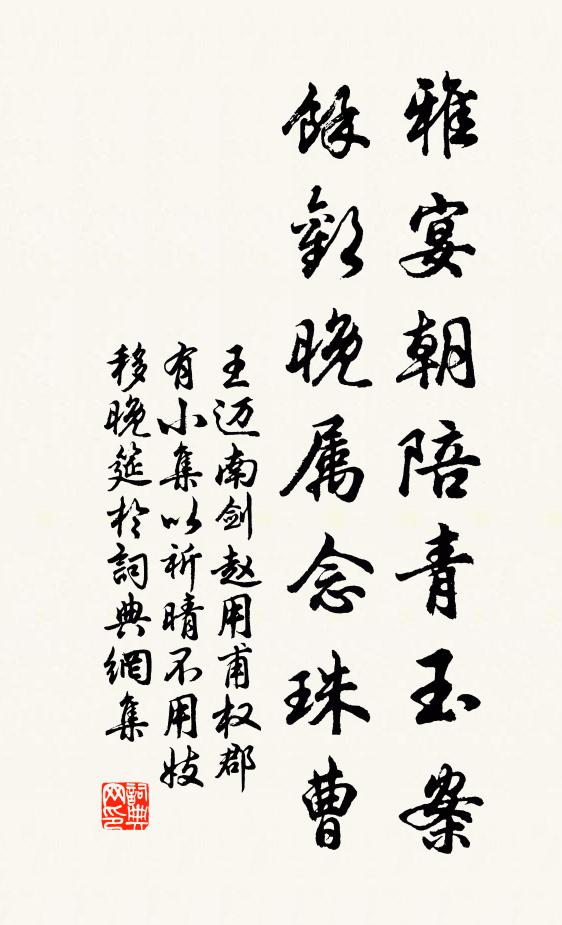 雅宴朝陪青玉案
餘歡晚属念珠曹
王迈南剑赵用甫权郡
有小集以祈晴不用妓
移晚筵於詞典網集
詞典网印